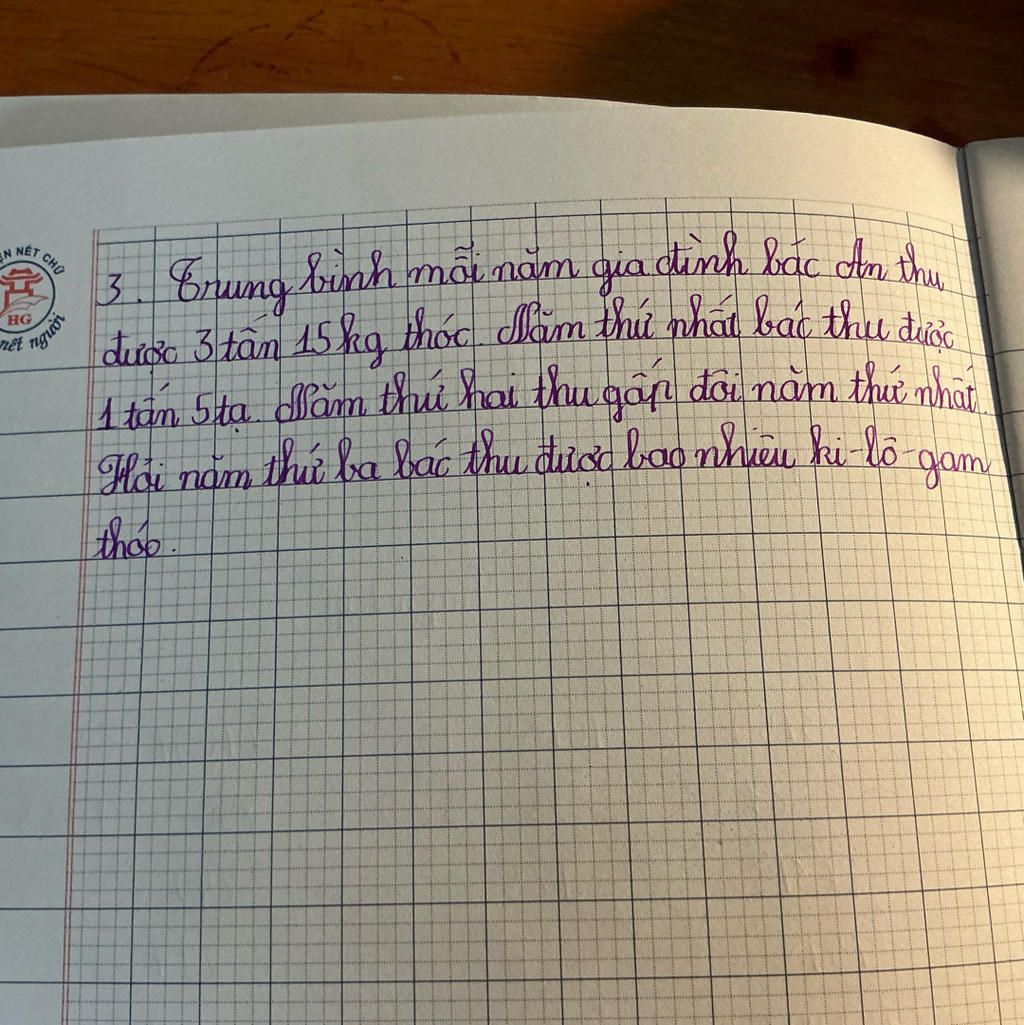 ỆN NÉT CHỮ
HG
nết người
3. Trung bình mỗi năm gia đình bác An thu
được 3 tấn 15 kg thóc. Năm thứ nhất bác thu được
1 tấn 5 tạ. Năm thứ hai thu gấp đôi năm thứ nhất.
Hỏi năm thứ ba bác thu được bao nhiêu ki-lô-gam
thóc.